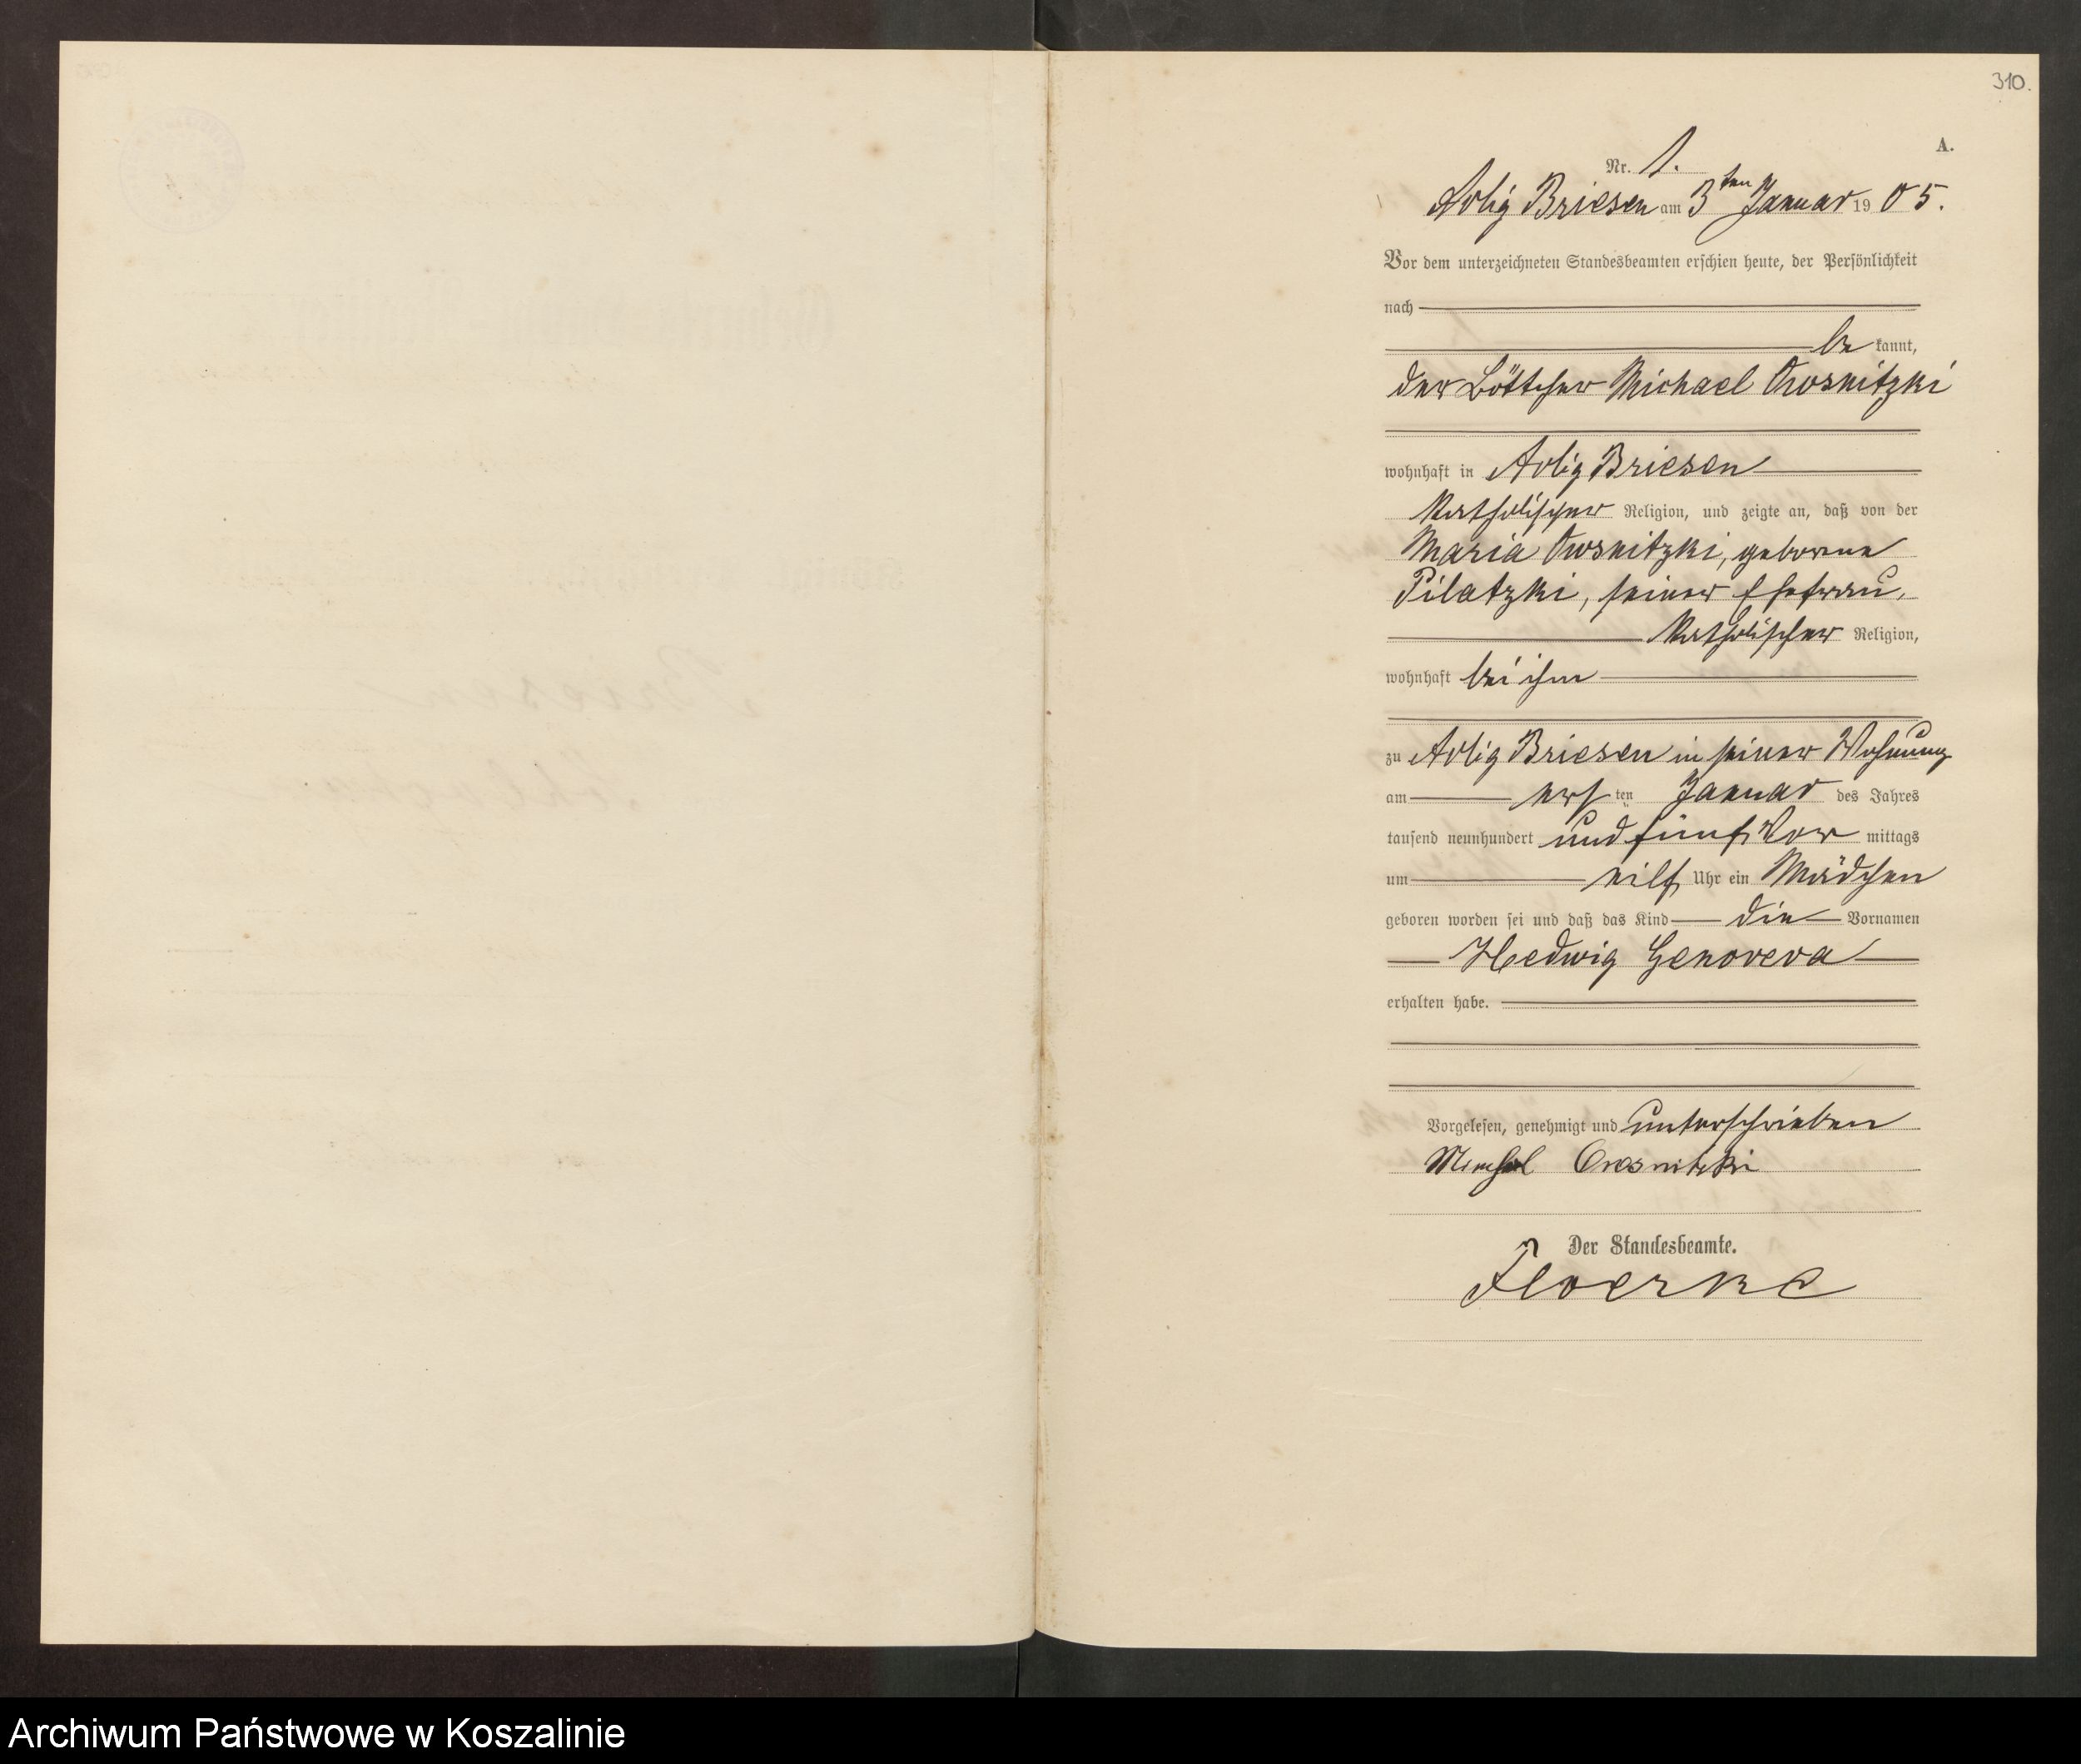 310.
A.
Nr. 1.
Adlig Briesen am 3ten Januar 1905.
Vor dem unterzeichneten Standesbeamten erschien heute, der Persönlichkeit
nach
be kannt,
der Böttcher Michael Owsnitzki
wohnhaft in Adlig Briesen
katholischer Religion, und zeigte an, daß von der
Maria Owsnitzki, geborene
Pilatzki, seiner Ehefrau,
katholischer Religion,
wohnhaft bei ihm
zu Adlig Briesen in seiner Wohnung
am ersten Januar des Jahres
tausend neunhundert und fünf Vor mittags
um elf Uhr ein Mädchen
geboren worden sei und daß das Kind die Vornamen
Hedwig Genoveva
erhalten habe.
Vorgelesen, genehmigt und unterschrieben
Michael Owsnitzki
Der Standesbeamte.
Floerke
Archiwum Państwowe w Koszalinie